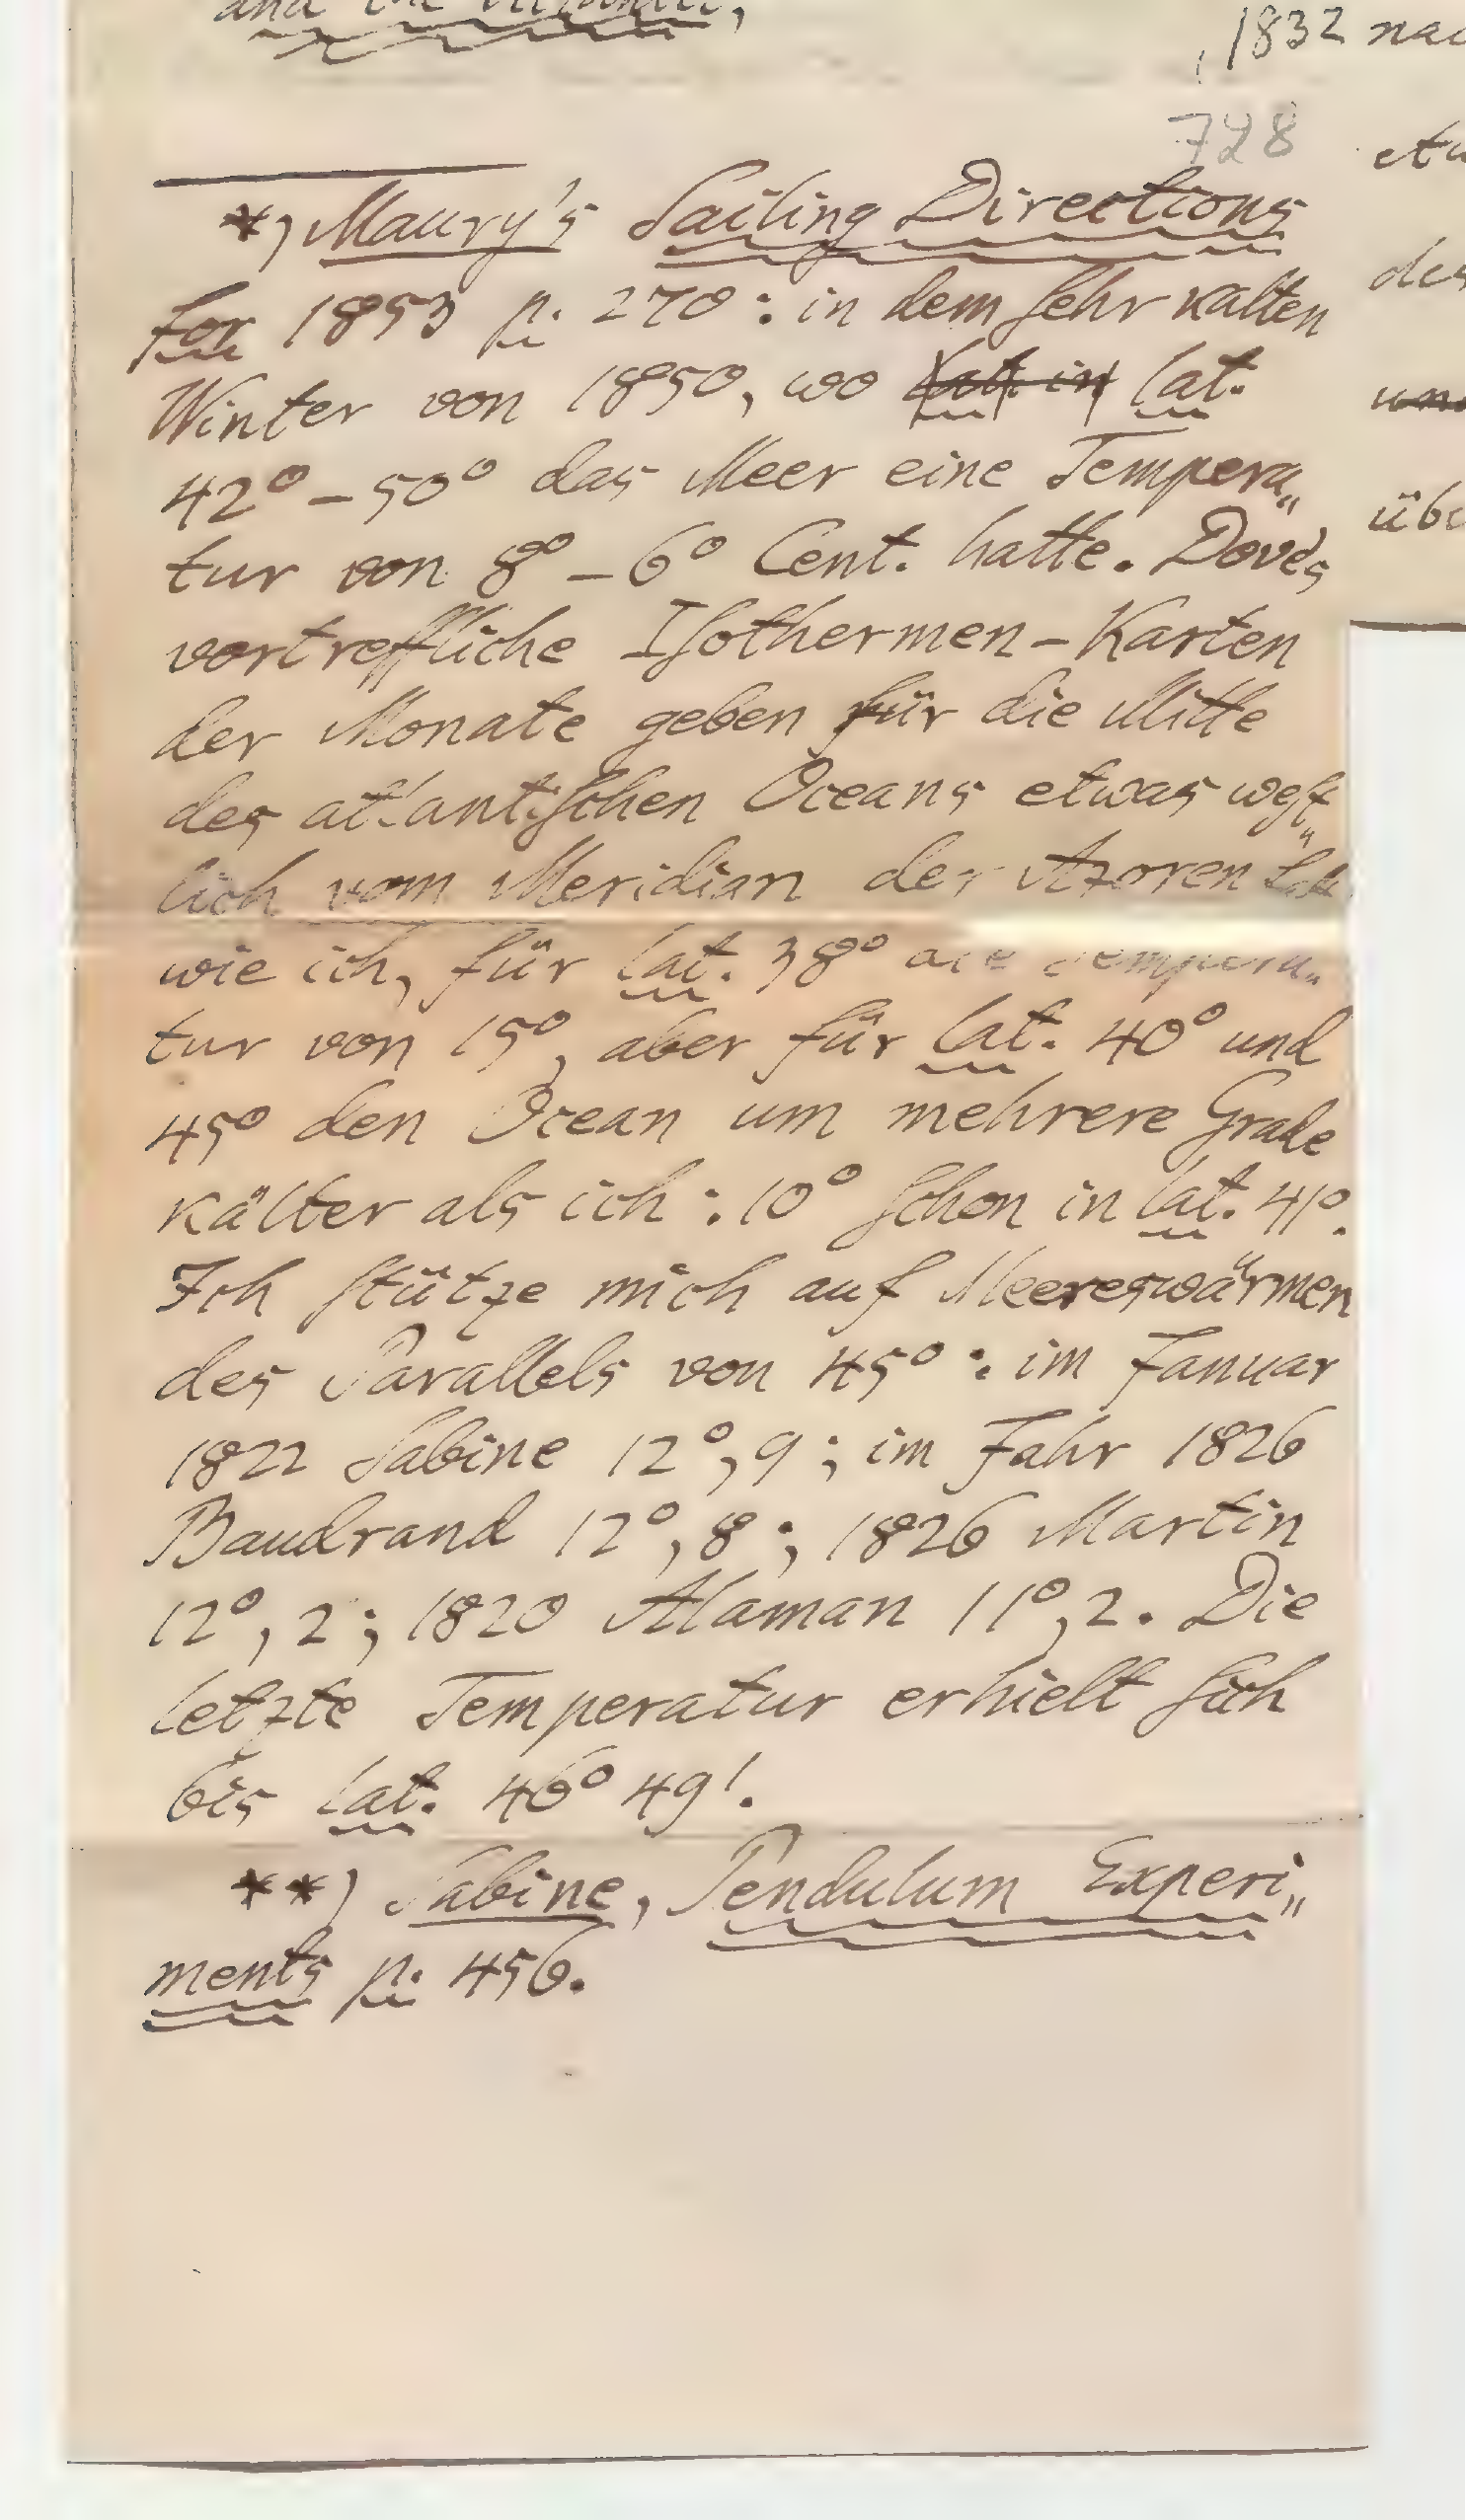 and the
, 1832 nac
728
*) Maury's Sailing Directions
for 1853 p. 270: in dem sehr kalten
Winter von 1850, wo lat. in lat.
42° – 50° das Meer eine Tempera„
tur von 8° – 6° Cent. hatte. Dove's
vortreffliche Isothermen-Karten
der Monate geben für die Mitte
des atlantischen Oceans etwas west„
lich vom Meridian der Azoren
wie ich, für lat. 38° die Tempera„
tur von 15°, aber für lat. 40° und
45° den Ocean um mehrere Grade
kälter als ich: 10° schon in lat. 41°.
Ich stütze mich auf Meereswärmen
des Parallels von 45°: im Januar
1822 Sabine 12°,9; im Jahr 1826
Baudrand 12°,8; 1826 Martin
12°,2; 1820 Alaman 11°,2. Die
letzte Temperatur erhielt sich
bis lat. 46° 49'.
**) Sabine, Pendulum Experi„
ments p. 456.
des
übe